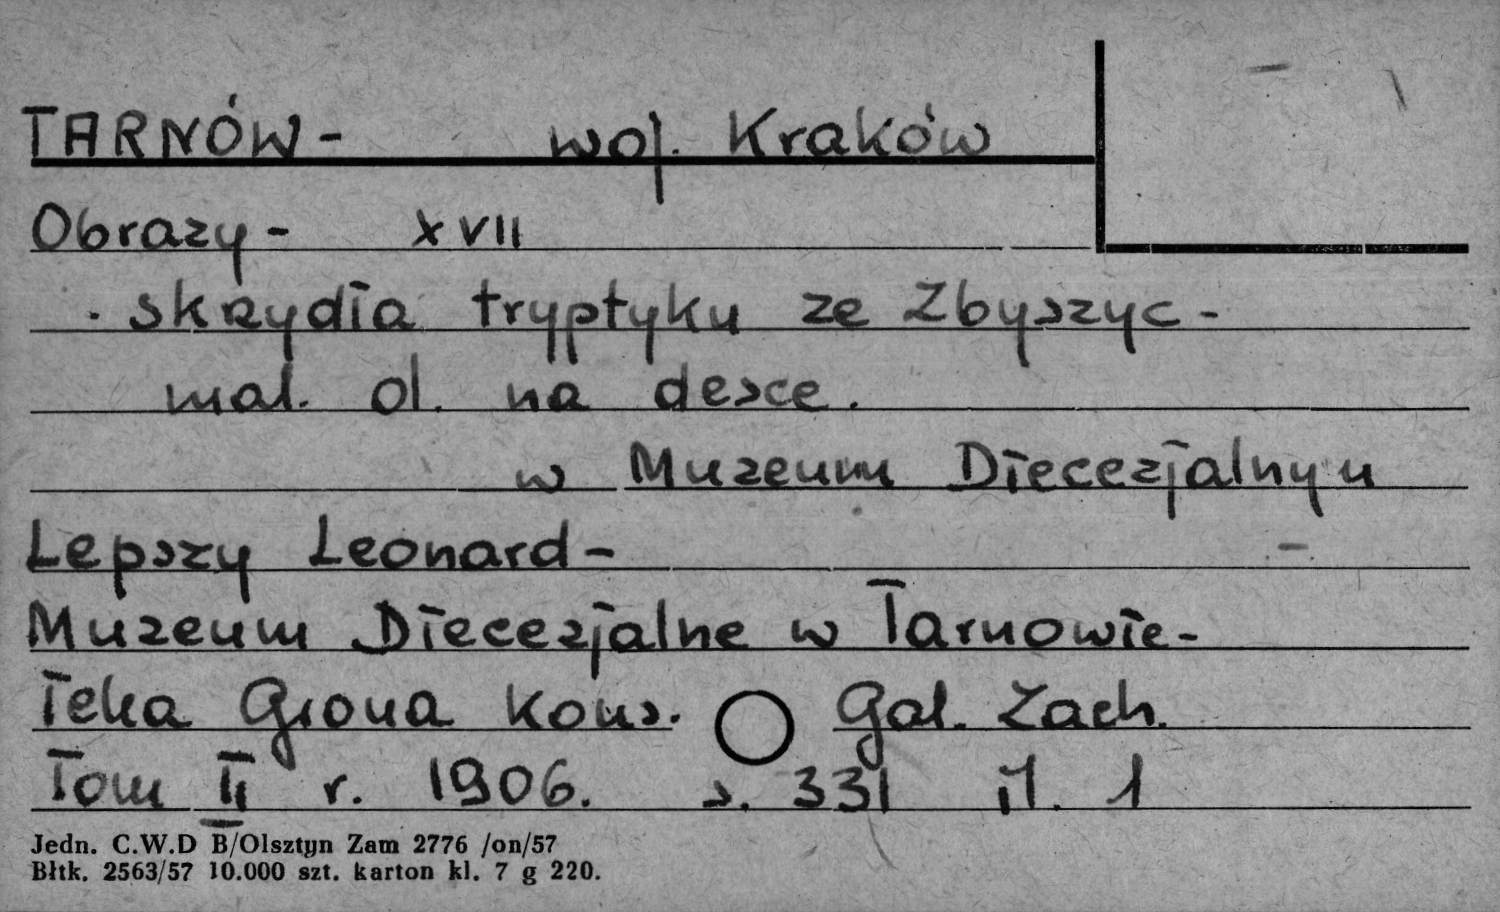 TARNÓW - woj. Kraków
Obrazy - XVII
. skrzydła tryptyku ze Zbyszyc -
mal. ol. na desce.
w Muzeum Diecezjalnym
Lepszy Leonard -
Muzeum Diecezjalne w Tarnowie -
Teka Grona Kons. Gal. Zach.
Tom II r. 1906. s. 331 il. 1
Jedn. C.W.D B/Olsztyn Zam 2776 /on/57
Błtk. 2563/57 10.000 szt. karton kl. 7 g 220.